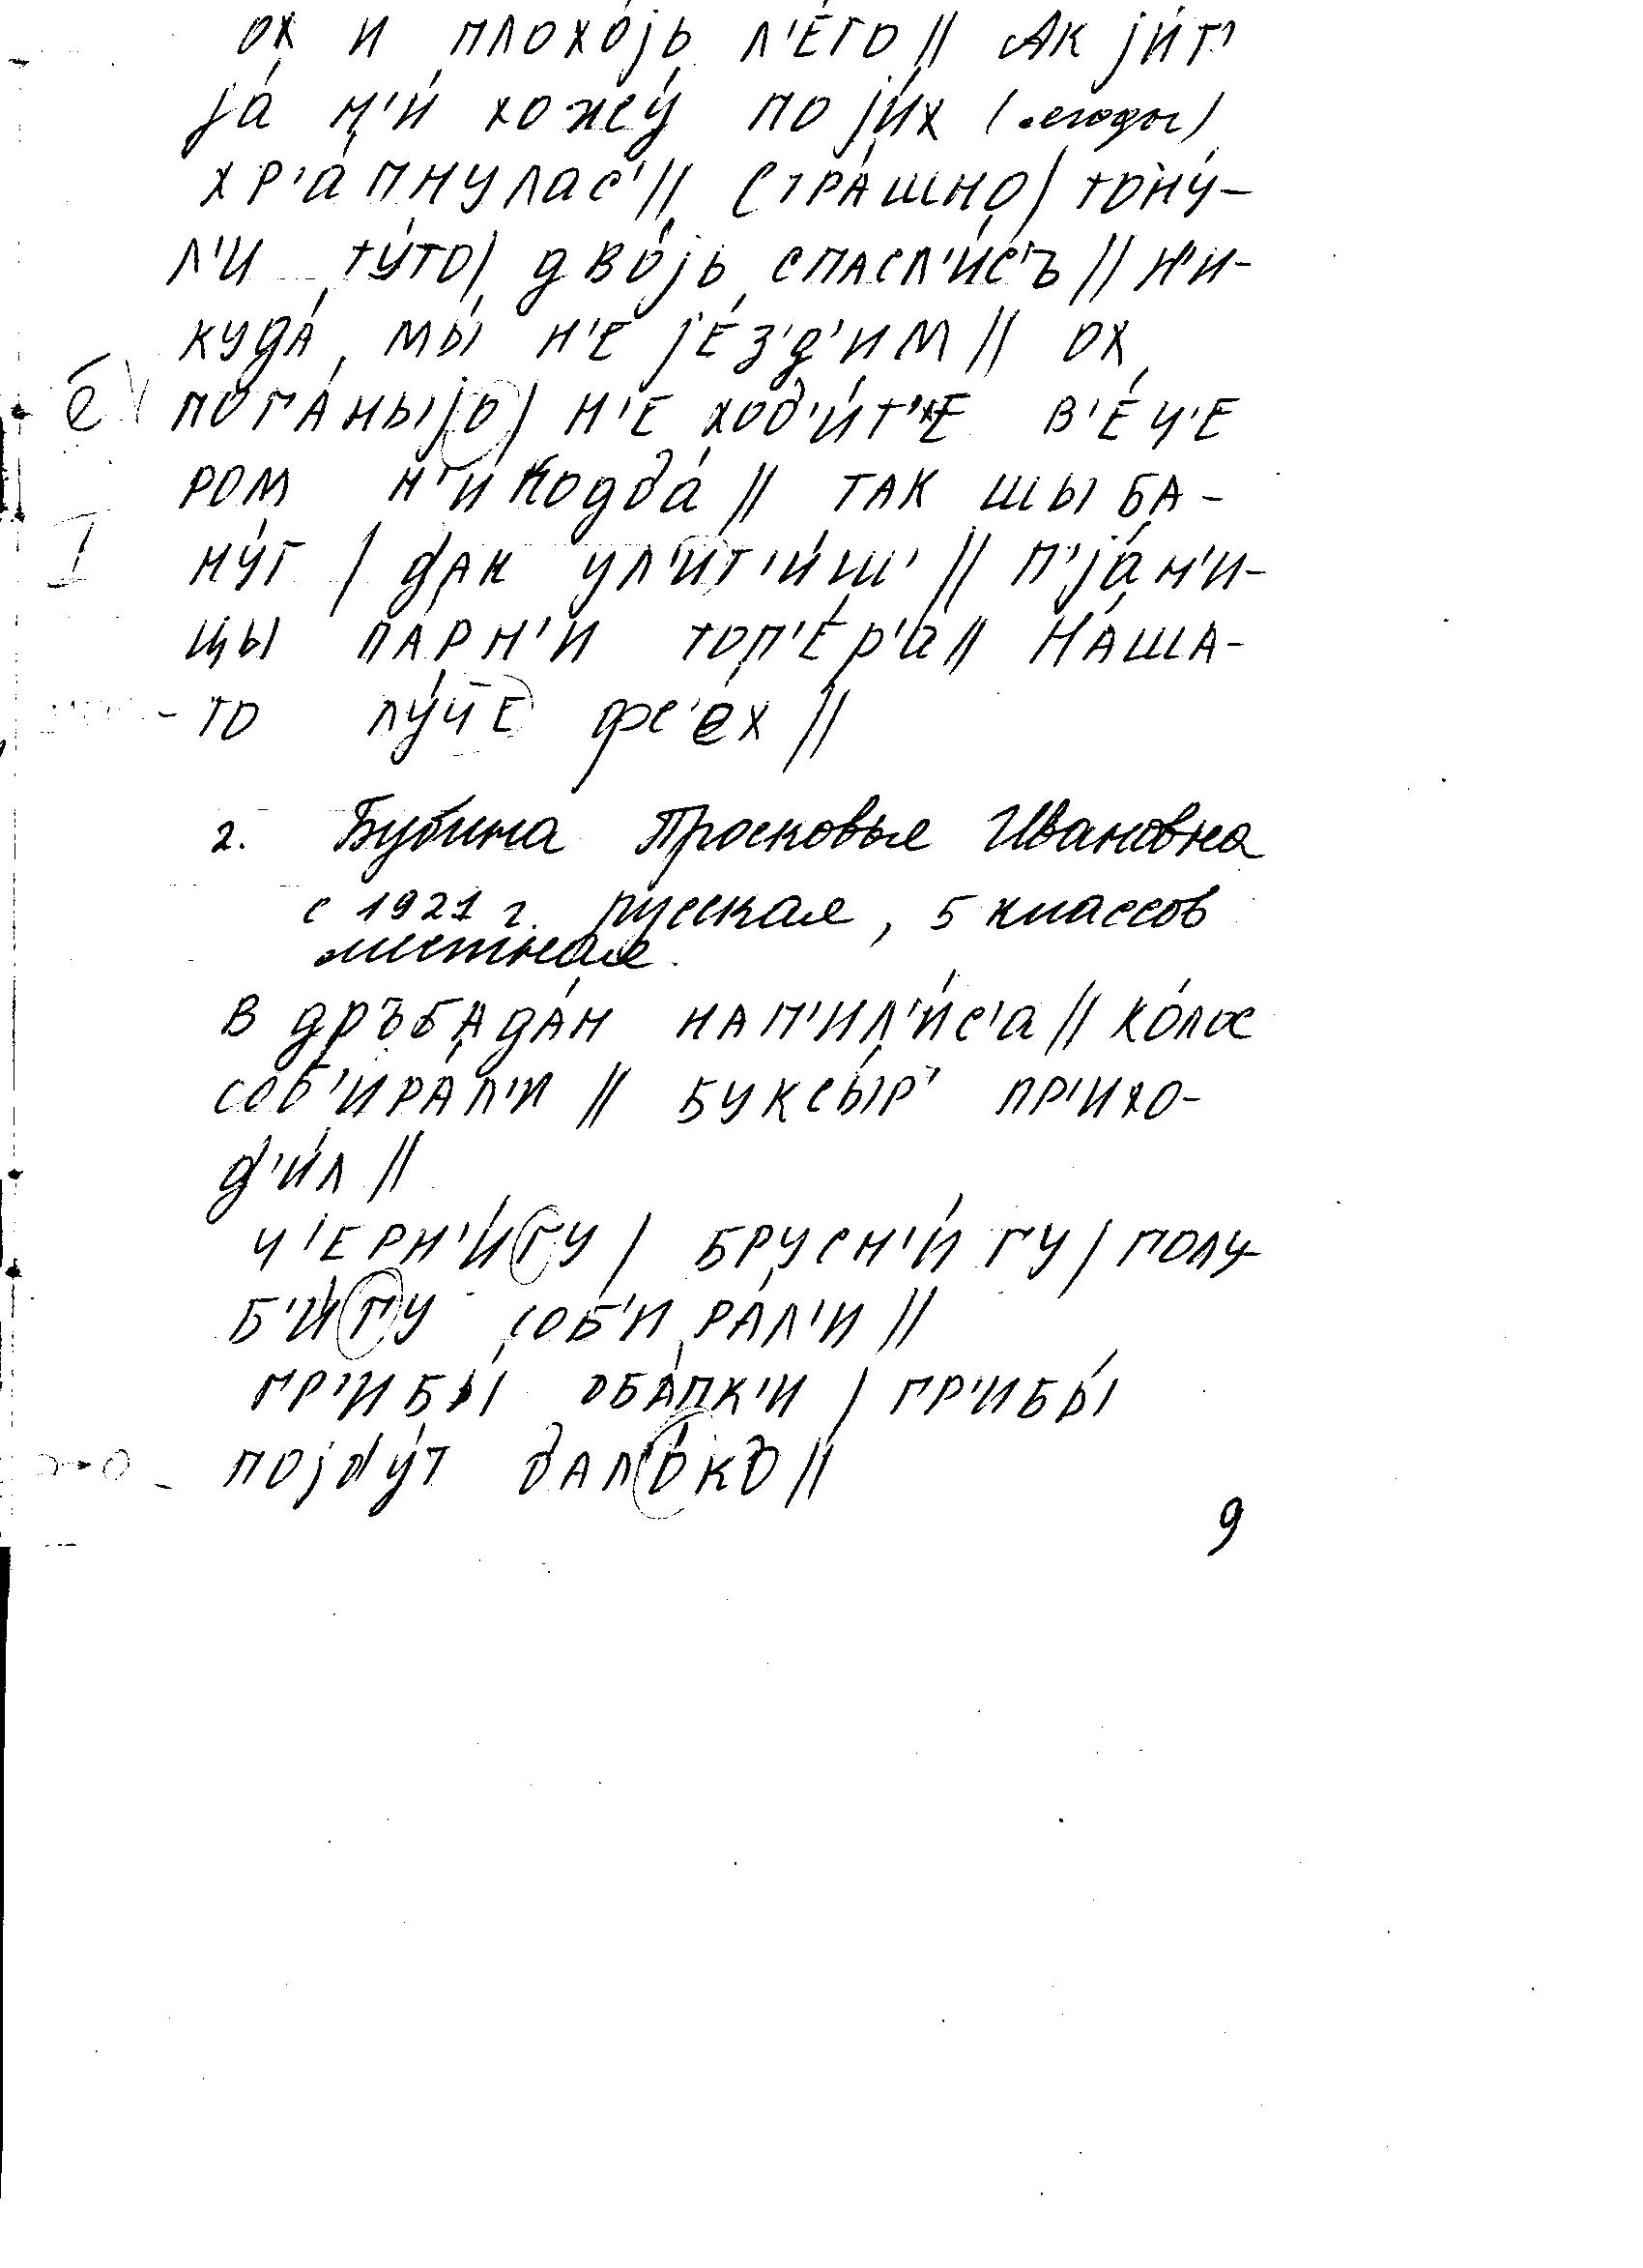 ох и плохо́јь л'е́го || Ак ји́т'
ја́ н'и́ хожеу́ по ји́х (ягоды)
хр'а́пнулас' || Стра́шно | тону́-
л'и ту́то | дво́јь спасл'и́с'ъ || н'и-
куда́ мы́ н'е је́з'д'им || ох
пога́ныјо | н'е ход'и́т'е в'е́ч'е
ром н'икодда́ || так шыба-
ну́т | дак ул'ит'и́ш' || п'ја́н'и-
цы па́рн'и топ'е́р'а || На́ша-
то лу́че фс'е́х ||
2. Бубина Просковья Ивановна
с 1921 г. русская, 5 классов
местная.
в дръбада́н нап'ил'и́с'а || ко́лос
соб'ира́л'и || буксы́р' пр'ихо-
д'и́л ||
ч'ерн'и́гу | брусн'и́гу | голу-
б'и́гу соб'ира́л'и ||
гр'ибы́ оба́пк'и | гр'ибы́
појду́т дало́ко ||
9